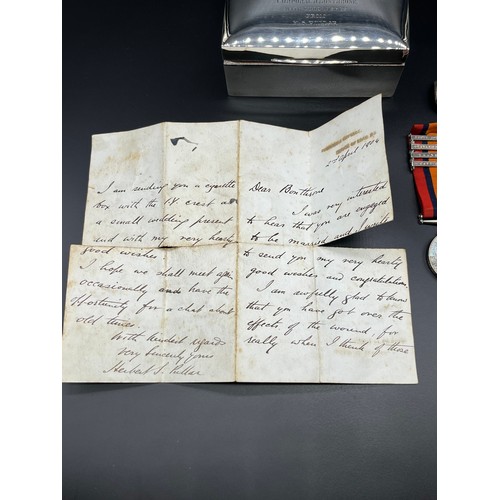 FROM
2nd April 1904
Dear Bonthrone
I was very interested
to hear that you are engaged
to be married and
to send you my very hearty
good wishes and congratulations
I am awfully glad to know
that you have got over the
effects of the wound, for
really when I think of those
I am sending you a cigarette
box with the crest as
a small wedding present
and with my very hearty
good wishes
I hope we shall meet
occasionally and have the
opportunity for a chat about
old times
With kindest regards
Very sincerely yours
Herbert S. Pullar